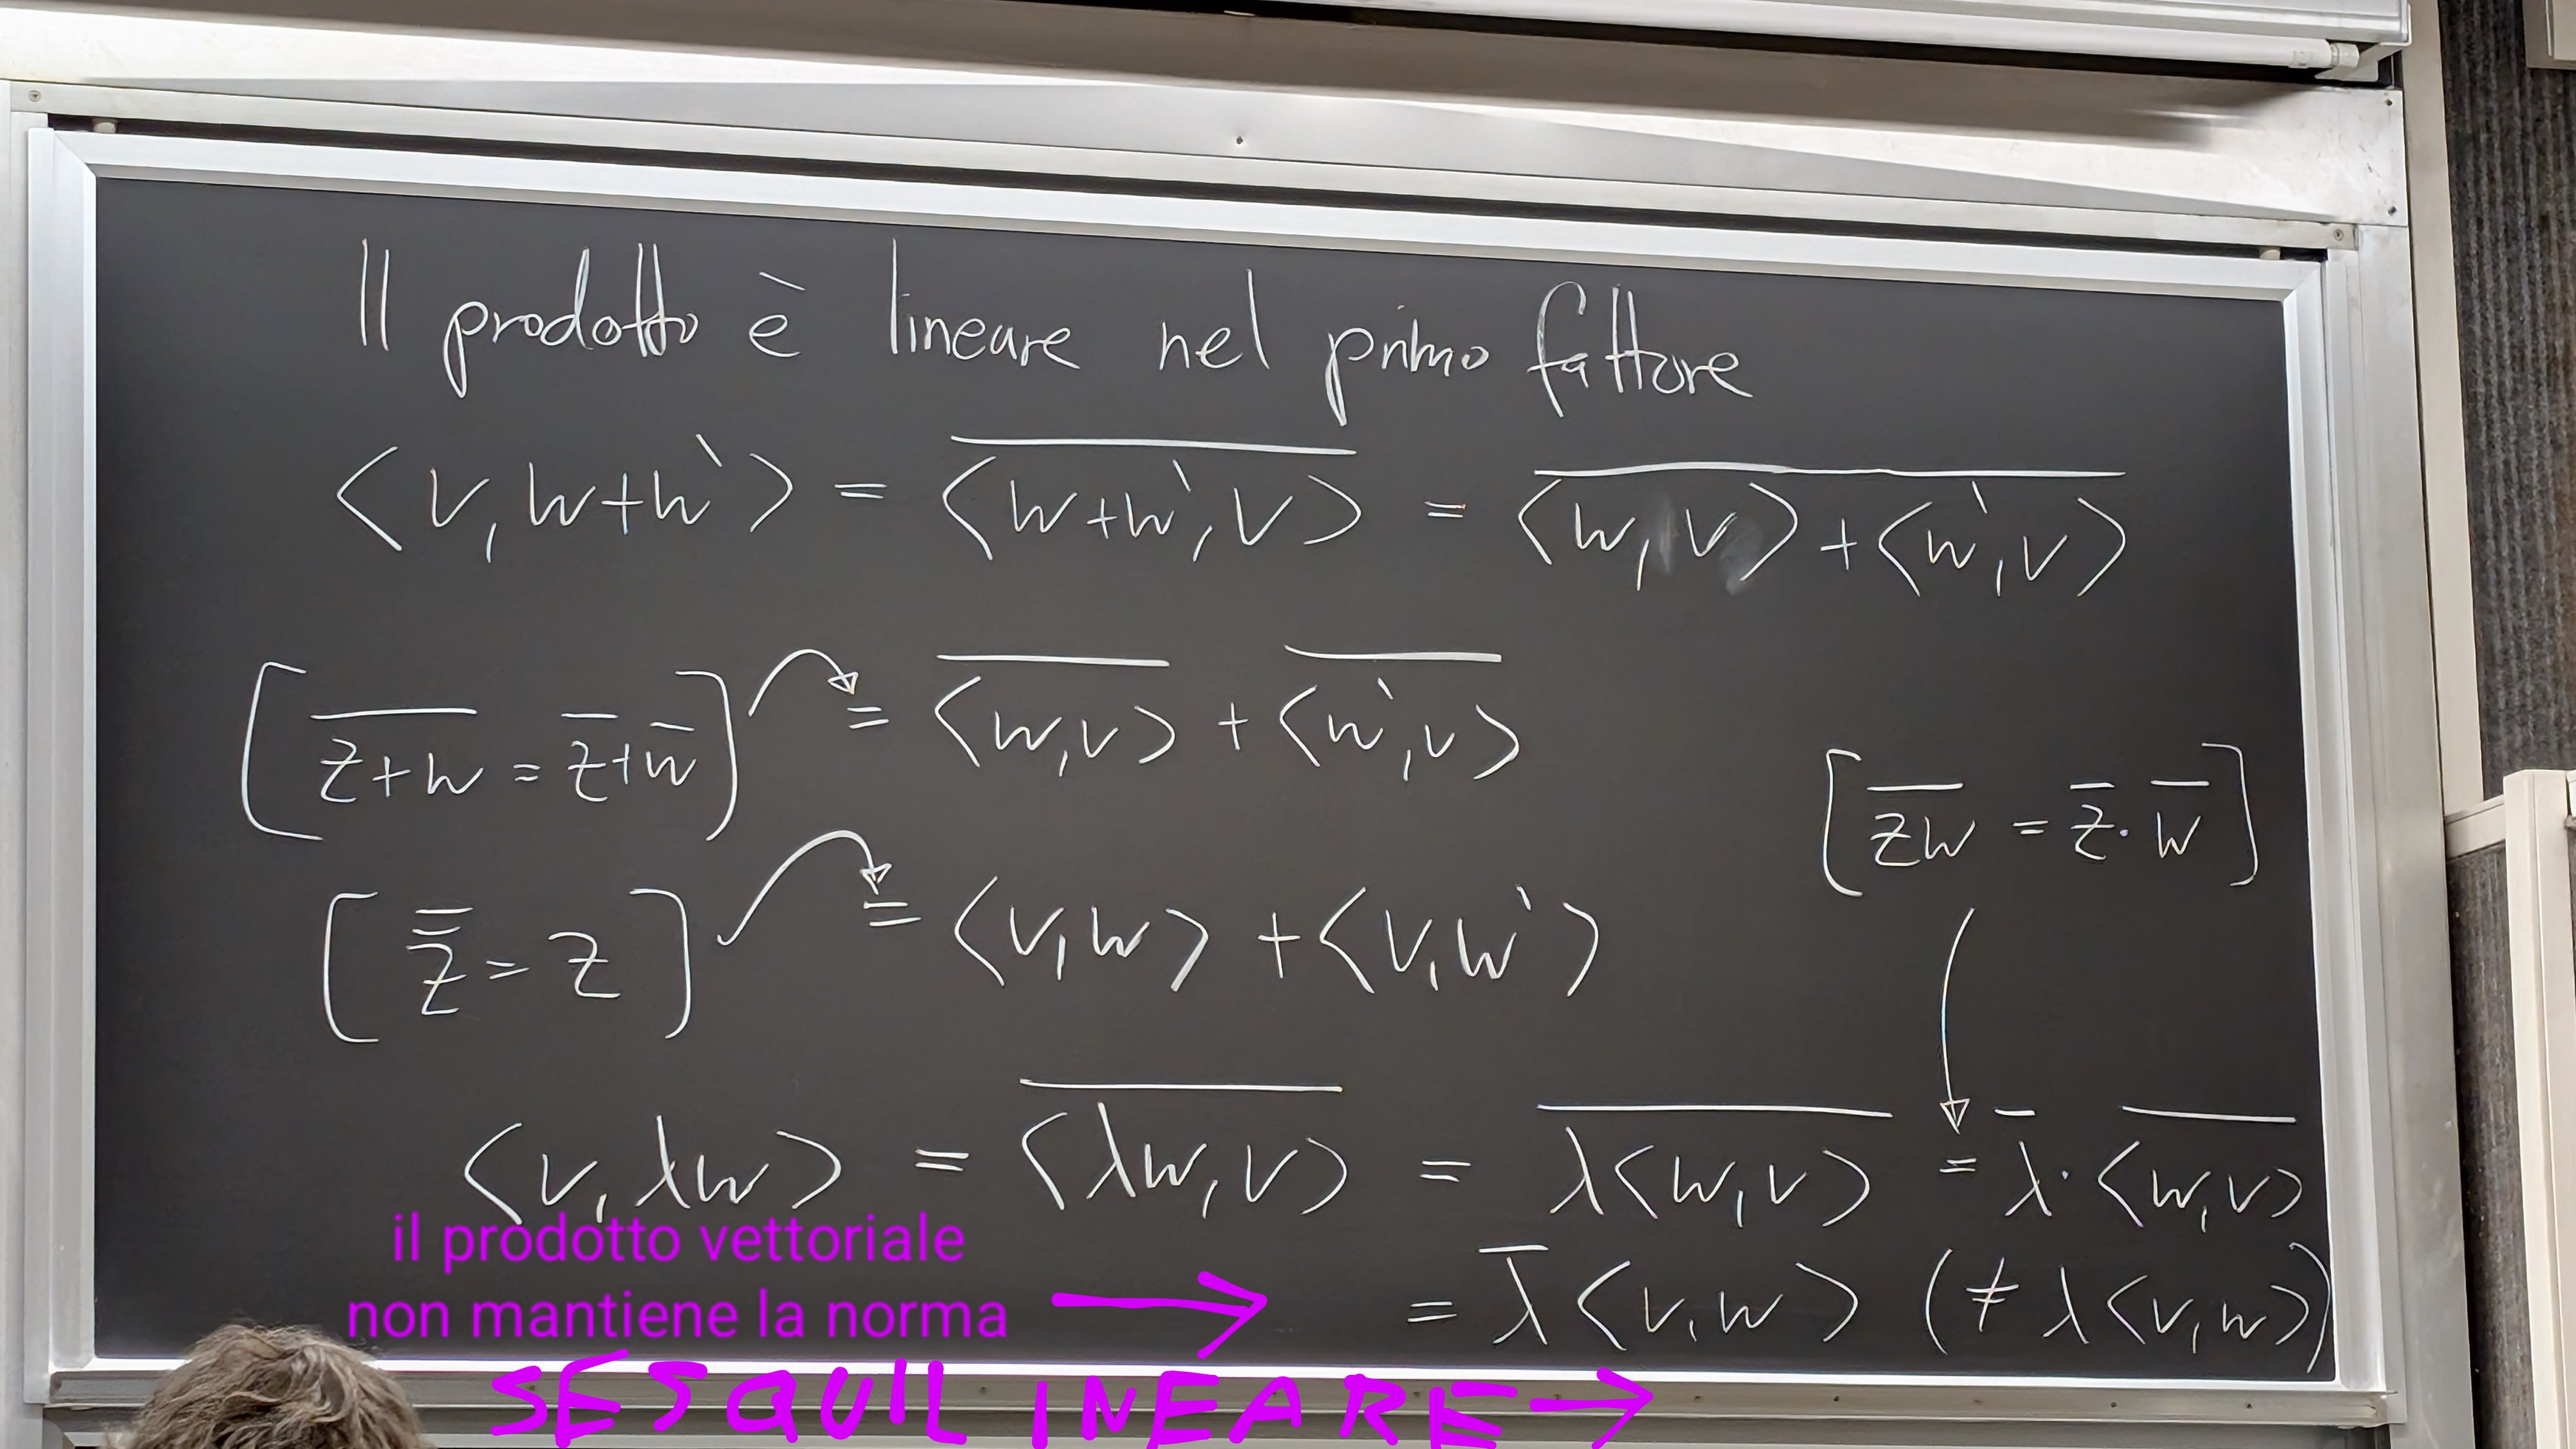 Il prodotto è lineare nel primo fattore
⟨v, w+w`⟩ = \overline{⟨w+w`, v⟩} = \overline{⟨w, v⟩ + ⟨w`, v⟩}
[\overline{z+w} = \overline{z}+\overline{w}] = \overline{⟨w,v⟩} + \overline{⟨w`,v⟩}
[\overline{zw} = \overline{z}·\overline{w}]
[\overline{\overline{z}} = z] = ⟨v,w⟩ + ⟨v,w`⟩
⟨v, λw⟩ = \overline{⟨λw, v⟩} = \overline{λ⟨w,v⟩} = \overline{λ}·\overline{⟨w,v⟩}
= \overline{λ}⟨v,w⟩ (≠ λ⟨v,w⟩)
il prodotto vettoriale
non mantiene la norma →
SESQUILINEARE →